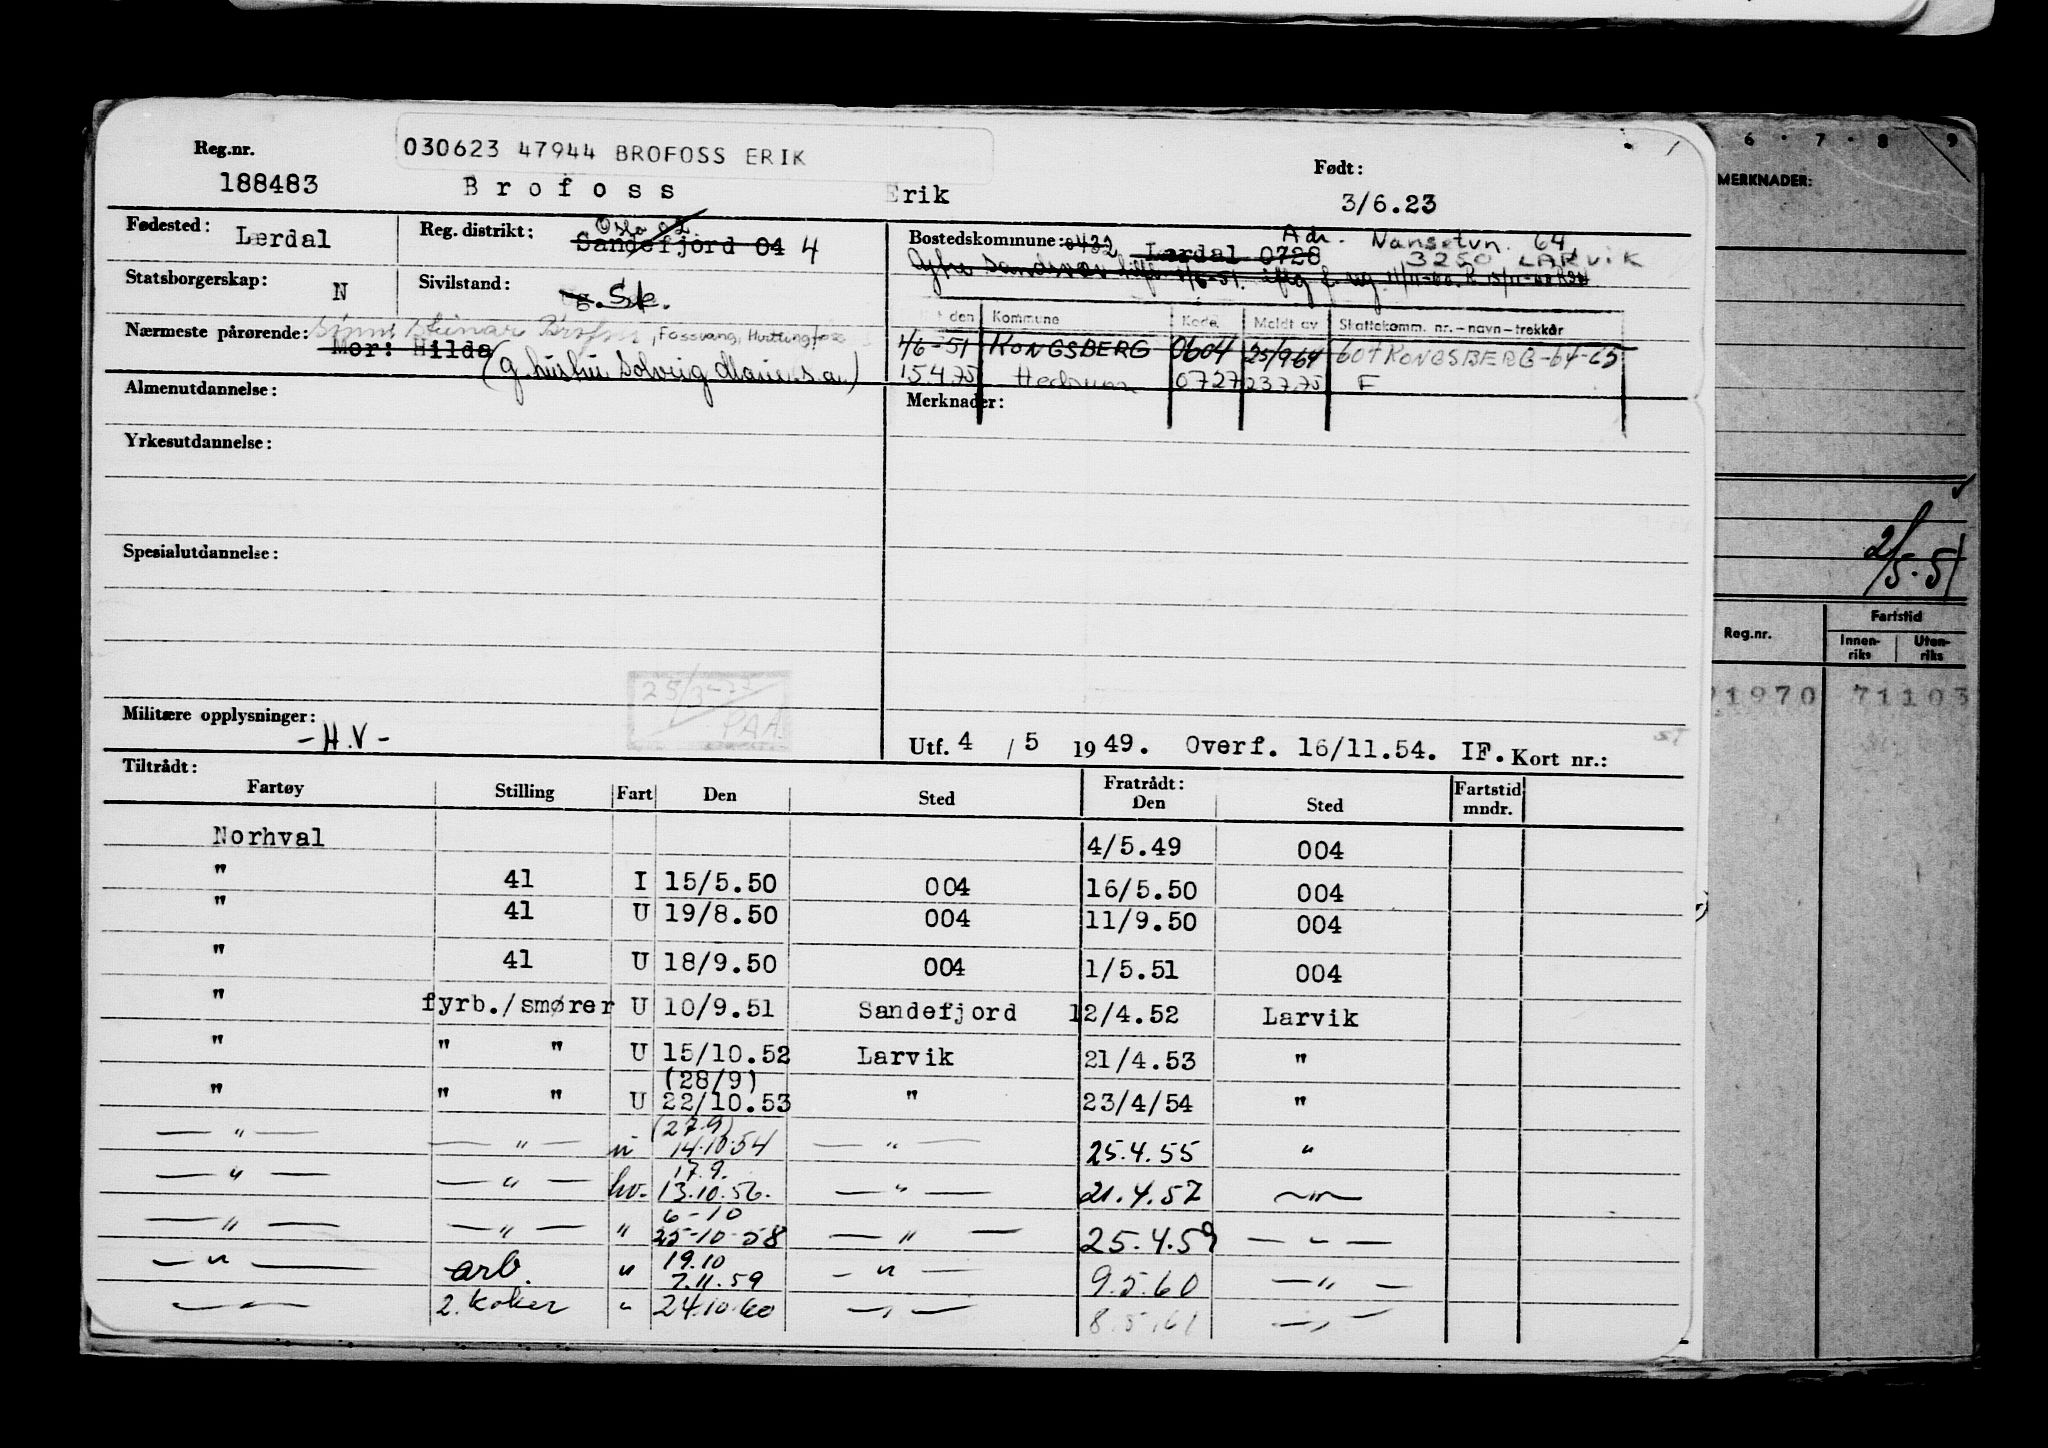 030623 47944 BROFOSS ERIK
Reg.nr. 188483 Brofoss Erik Født: 3/6.23
Fødested: Lærdal Reg. distrikt: Oslo 02 Sandefjord 04 4 Bostedskommune: 0432 Lærdal 0728 Adr. Nansetvn. 64, 3250 LARVIK
Statsborgerskap: N Sivilstand: g. Sk.
Nærmeste pårørende: Steinar Brofoss, Fossvang, Hvittingfoss
Mor: Hilda (g. hustru Solveig Marie s.a.)
den Kommune Kode Meldt av Skattekomm. nr.-navn-trekkår
1/6-51 KONGSBERG 0604 25/9 64 607 KONGSBERG-64-65
15.4.75 Hedrum 0727 23.7.75 F
Almenutdannelse: Merknader:
Yrkesutdannelse:
Spesialutdannelse:
25/3-77 PAA.
Militære opplysninger: -H.V-
Utf. 4 / 5 1949. Overf. 16/11.54. IF. Kort nr.:
Tiltrådt: Fratrådt:
Fartøy Stilling Fart Den Sted Den Sted Fartstid mndr.
Norhval 4/5.49 004
" 41 I 15/5.50 004 16/5.50 004
" 41 U 19/8.50 004 11/9.50 004
" 41 U 18/9.50 004 1/5.51 004
" fyrb./smører U 10/9.51 Sandefjord 12/4.52 Larvik
" " " U 15/10.52 Larvik 21/4.53 "
(28/9)
" " " U 22/10.53 " 23/4/54 "
(27.9)
— " — — " — u 14.10.54 — " — 25.4.55 "
17.9.
— " — — " — hv. 13.10.56. — " — 21.4.57 — " —
6-10
— " — — " — " 25-10-58 — " — 25.4.59 — " —
19.10
— " — arb. " 7.11.59 — " — 9.5.60 — " —
— " — 2. koker " 24.10.60 — " — 8.5.61 — " —
6 · 7 · 8 9
MERKNADER:
2/5-51
Reg.nr. Fartstid
Innen-riks Uten-riks
21970 71103